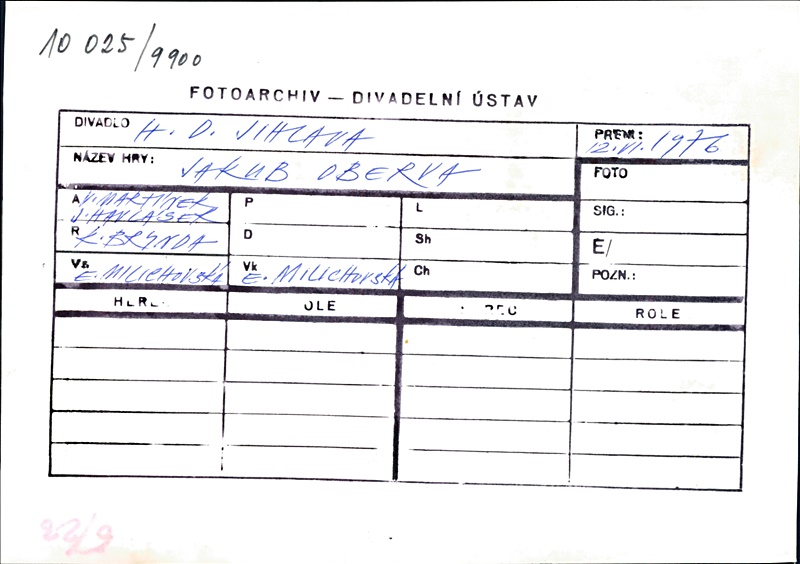 10 025/9900
FOTOARCHIV — DIVADELNÍ ÚSTAV
DIVADLO H. D. JIHLAVA
PREM.: 12.VI. 1976
NÁZEV HRY: JAKUB OBERVA
FOTO
A V. MARTINEK, P L
J. HAVLASEK SIG.:
R K. BRYNDA D Sh E/
Vs E. MILICHOVSKÁ Vk E. MILICHOVSKÁ Ch POZN.:
ROLE
22/9